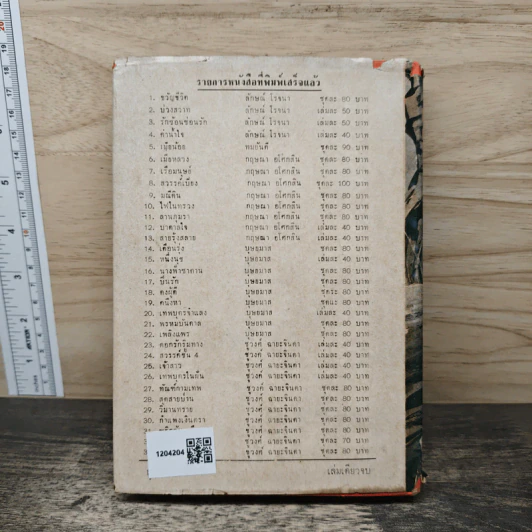 รายการหนังสือที่พิมพ์เสร็จแล้ว
1. ขวัญชีวิต ลักษณ์ โรจนา ชุดละ 80 บาท
2. บ่วงสวาท ลักษณ์ โรจนา เล่มละ 50 บาท
3. รักซ้อนซ่อนรัก ลักษณ์ โรจนา เล่มละ 50 บาท
4. ค่าน้ำใจ ลักษณ์ โรจนา เล่มละ 40 บาท
5. เมียน้อย ทมยันตี ชุดละ 90 บาท
6. เมียหลวง กฤษณา อโศกสิน ชุดละ 80 บาท
7. เรือมนุษย์ กฤษณา อโศกสิน ชุดละ 80 บาท
8. สวรรค์เบี่ยง กฤษณา อโศกสิน ชุดละ 100 บาท
9. มณีดิน กฤษณา อโศกสิน ชุดละ 80 บาท
10. ไฟในทรวง กฤษณา อโศกสิน ชุดละ 80 บาท
11. ลานภุมรา กฤษณา อโศกสิน ชุดละ 80 บาท
12. บาดาลใจ กฤษณา อโศกสิน เล่มละ 40 บาท
13. สายรุ้งสลาย กฤษณา อโศกสิน เล่มละ 40 บาท
14. เดือนรุ่ง บุษยมาส ชุดละ 80 บาท
15. หนึ่งนุช บุษยมาส เล่มละ 40 บาท
16. นางฟ้าซาตาน บุษยมาส ชุดละ 80 บาท
17. บุษยมาส ชุดละ 80 บาท
18. บุษยมาส ชุดละ 80 บาท
19. บุษยมาส ชุดละ 80 บาท
20. เทพบุตรจำแลง บุษยมาส เล่มละ 40 บาท
21. พรหมบันดาล บุษยมาส ชุดละ 80 บาท
22. เพลิงแพร บุษยมาส ชุดละ 80 บาท
23. ชูวงศ์ ฉายะจินดา เล่มละ 40 บาท
24. สวรรค์ชั้น 4 ชูวงศ์ ฉายะจินดา เล่มละ 40 บาท
25. เจ้าสาว ชูวงศ์ ฉายะจินดา เล่มละ 40 บาท
26. เทพบุตรในฝัน ชูวงศ์ ฉายะจินดา เล่มละ 40 บาท
27. ทัณฑ์กามเทพ ชูวงศ์ ฉายะจินดา ชุดละ 80 บาท
28. สุดสายป่าน ชูวงศ์ ฉายะจินดา ชุดละ 80 บาท
29. วิมานทราย ชูวงศ์ ฉายะจินดา ชุดละ 80 บาท
30. กำแพงเงินตรา ชูวงศ์ ฉายะจินดา ชุดละ 80 บาท
ชูวงศ์ ฉายะจินดา ชุดละ 80 บาท
ชูวงศ์ ฉายะจินดา ชุดละ 70 บาท
ชูวงศ์ ฉายะจินดา ชุดละ 80 บาท
1204204
เล่มเดียวจบ